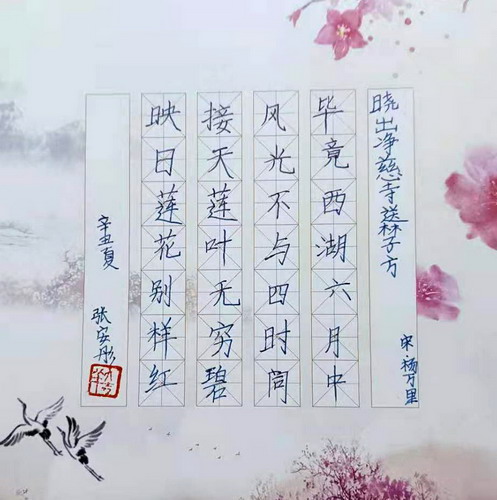 晓出净慈寺送林子方
宋·杨万里
毕竟西湖六月中
风光不与四时同
接天莲叶无穷碧
映日莲花别样红
辛丑夏
张安彤